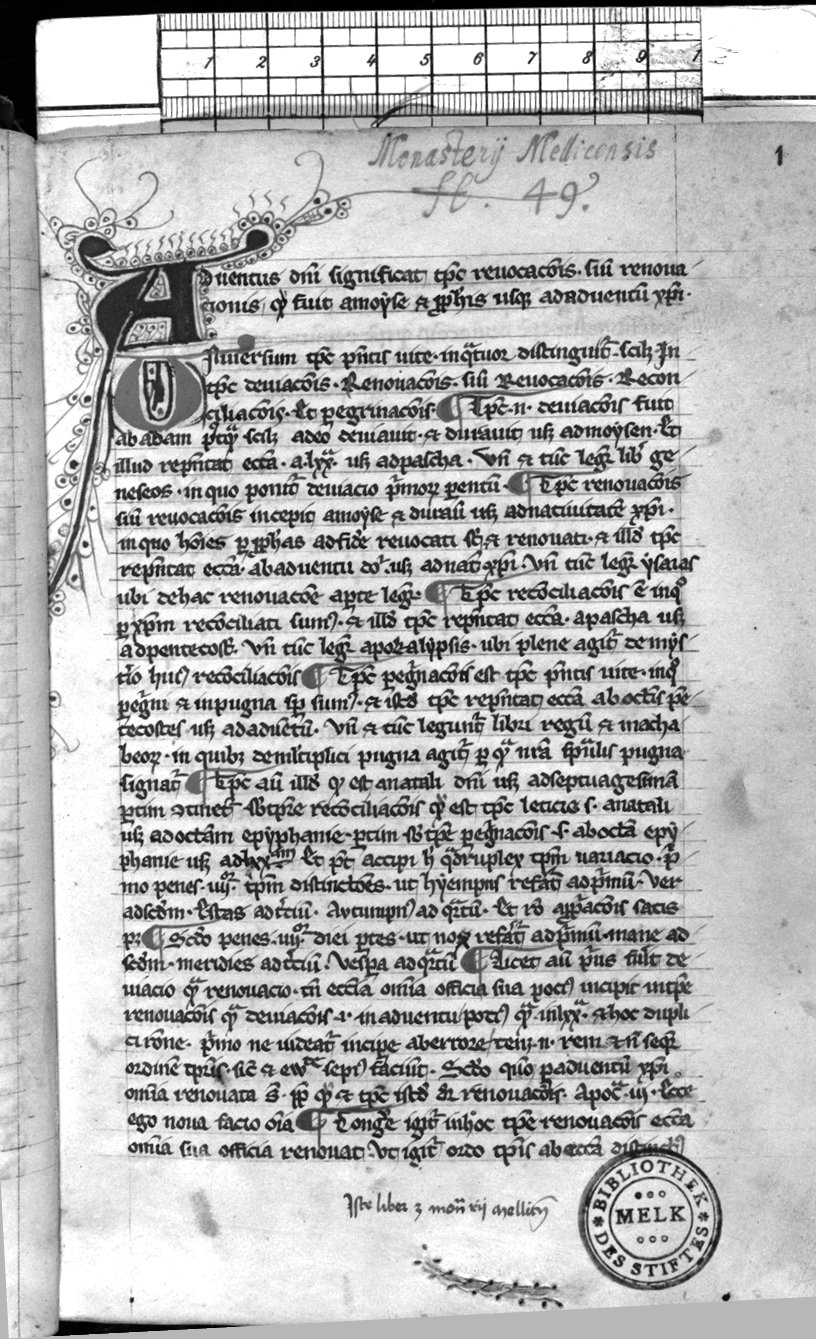 1 2 3 4 5 6 7 8 9 1
Monasterij Mellicensis
1
fc. 49.
Aduentus dnī significat tp̄c reuocacōis. siū renoua
cionis qͥ fuit amoyse & ꝓph̄is usqꝫ adaduentū xp̄i.
Uniuersum tp̄c pn̄tis uite. in qͣtuor distinguit᷑. scilꝫ In
tp̄c deuiacōis. Renouacōis. siū Reuocacōis. Recon
ciliacōis. Et pegrinacōis. Tp̄c .n. deuiacōis fuit
ab adam scilꝫ adeo deuiauit. & durauit usꝫ admoysen. Et
illud rep̄ntat ecc̄a. a.lxx. usꝫ adpascha. Vn̄ & tūc legr̄ lib ge
neseos. in quo ponit᷑ deuiacio p̄moꝝ pentū. Tp̄c renouacōis
siū reuocacōis incepit amoyse & durauī usꝫ adnatiuitatē xp̄i.
in quo hōies ꝑ ꝓph̄as adfidē reuocati st̄ & renouati. & illd̄ tp̄c
rep̄ntat ecc̄a. ab aduentu do. usꝫ adnat̄ xp̄i. Vn̄ tūc legr̄ ysaias
ubi dehac renouacōe apte legr̄. Tp̄c recōciliacōis ē inqͦ
ꝑ xp̄m recōciliati sumꝰ. & illd̄ tp̄c rep̄ntat ecc̄a. apascha usꝫ
adpentecost̄. Vn̄ tūc legr̄ apokalypsis. ubi plene agit᷑ de mys
t̄io huiꝰ recōciliacōis Tp̄c pegͥnacōis est tp̄c pn̄tis uite. inqͦ
pegͥni & inpugna sp̄ sumꝰ. & istd̄ tp̄c rep̄ntat ecc̄a ab oct̄is pē
tecostes usꝫ adaduētū. Vn̄ & tūc legunt᷑ libri regū & macha
beoꝝ. in quibꝫ demltiplici pugna agit᷑ ꝑ qͣ nr̄a sp̄ualis pugna
signat᷑ Tp̄c aū illd̄ qͦ est anatali dnī usꝫ adseptuagesimā
ꝑtim ꝯtinet᷑ sb̄tp̄re recōciliacōis qͦ est tp̄c leticie .s. anatali
usꝫ adoctām epyphanie. ꝑtim sb̄ tp̄e pegͥnacōis .s. aboctā epy
phanie usꝫ adlxxᵃᵐ Et pōt accipi h̄ qͣdruplex tp̄m uariacio. pͥ
mo penes .iiijᵒʳ. tp̄m distinctōes. ut hyempns refat᷑ adpͥmū. Ver
adscd̄m. Estas adt̄ciū. Autumpnꝰ ad qͣrtū. Et rō satis
pꝫ Scd̄o penes .iiijᵒʳ. diei ptes. ut nox refat᷑ adpͥmū. mane ad
scd̄m. meridies adt̄ciū. Vespa adqͣrtū Licet aū pͥus fuit de
uiacio qͣ renouacio. tn̄ eccl̄ia omīa officia sua pociꝰ incipit intp̄e
renouacōis qͣ deuiacōis .i. in aduentu potiꝰ qͣ. inlxxᵃ. & hoc dupli
ci rōne. pͥmo ne uideat᷑ incipe aberrore tenꝫ .n. rem & n̄ seqͥr
ordinē tp̄ris. sic̄ & ewͬͤ sepiꝰ faciūt. Scd̄o quō ꝑaduentū xp̄i
omīa renouata st̄. ꝓp qͦ & tp̄c istd̄ dr̄ renouacōis. Apoc̄. Ecce
ego noua facio oīa Congͤe igit᷑ inhoc tp̄e renouacōis ecc̄a
omīa sua officia renouat Vt igit᷑ ordo tp̄is ab ecc̄a
Iste liber ꝫ mon̄rij mellicn̄
BIBLIOTHEK
MELK
DES STIFTES